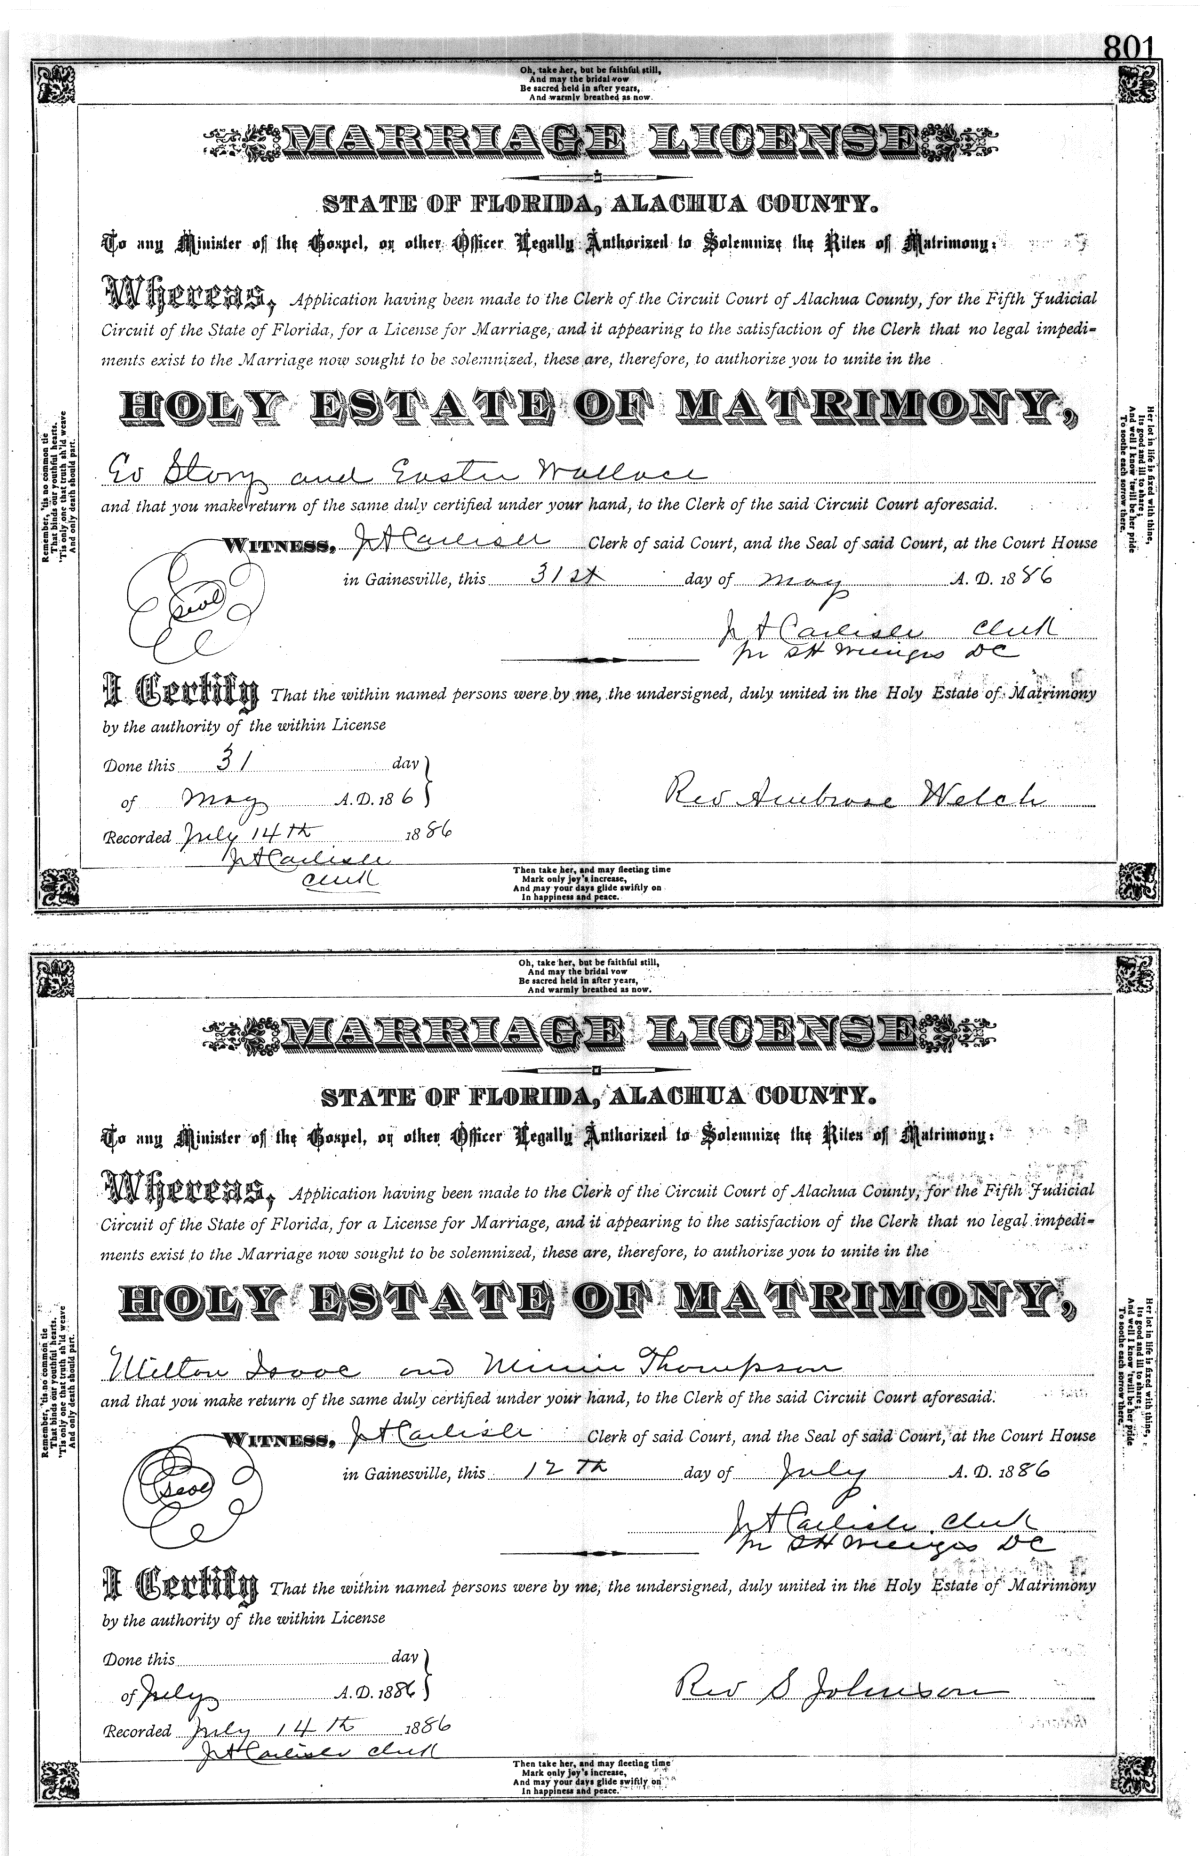 801
Oh, take her, but be faithful still,
And may the bridal vow
Be sacred held in after years,
And warmly breathed as now.
MARRIAGE LICENSE
STATE OF FLORIDA, ALACHUA COUNTY.
To any Minister of the Gospel, or other Officer Legally Authorized to Solemnize the Rites of Matrimony:
Whereas, Application having been made to the Clerk of the Circuit Court of Alachua County, for the Fifth Judicial
Circuit of the State of Florida, for a License for Marriage, and it appearing to the satisfaction of the Clerk that no legal impedi-
ments exist to the Marriage now sought to be solemnized, these are, therefore, to authorize you to unite in the
HOLY ESTATE OF MATRIMONY,
Ed Story and Easter Wallace
and that you make return of the same duly certified under your hand, to the Clerk of the said Circuit Court aforesaid.
WITNESS, J A Carlisle Clerk of said Court, and the Seal of said Court, at the Court House
Seal
in Gainesville, this 31st day of May A. D. 1886
J A Carlisle Clerk
pr S H Wienges DC
I Certify That the within named persons were by me, the undersigned, duly united in the Holy Estate of Matrimony
by the authority of the within License
Done this 31 day
of May A.D. 186
Rev Ambrose Welch
Recorded July 14th 1886
J A Carlisle
Clerk
Remember, 'tis no common tie
That binds our youthful hearts,
'Tis only one that truth sh'ld weave
And only death should part.
Her lot in life is fixed with thine,
Its good and ill to share;
And well I know 'twill be her pride
To soothe each sorrow there.
Then take her, and may fleeting time
Mark only joy's increase,
And may your days glide swiftly on
In happiness and peace.
Oh, take her, but be faithful still,
And may the bridal vow
Be sacred held in after years,
And warmly breathed as now.
MARRIAGE LICENSE
STATE OF FLORIDA, ALACHUA COUNTY.
To any Minister of the Gospel, or other Officer Legally Authorized to Solemnize the Rites of Matrimony:
Whereas, Application having been made to the Clerk of the Circuit Court of Alachua County, for the Fifth Judicial
Circuit of the State of Florida, for a License for Marriage, and it appearing to the satisfaction of the Clerk that no legal impedi-
ments exist to the Marriage now sought to be solemnized, these are, therefore, to authorize you to unite in the
HOLY ESTATE OF MATRIMONY,
Milton Isaac and Minnie Thompson
and that you make return of the same duly certified under your hand, to the Clerk of the said Circuit Court aforesaid.
WITNESS, J A Carlisle Clerk of said Court, and the Seal of said Court, at the Court House
Seal
in Gainesville, this 12th day of July A. D. 1886
J A Carlisle Clerk
pr S H Wienges DC
I Certify That the within named persons were by me, the undersigned, duly united in the Holy Estate of Matrimony
by the authority of the within License
Done this day
of July A.D. 1886
Rev S Johnson
Recorded July 14th 1886
J A Carlisle Clerk
Remember, 'tis no common tie
That binds our youthful hearts,
'Tis only one that truth sh'ld weave
And only death should part.
Her lot in life is fixed with thine,
Its good and ill to share;
And well I know 'twill be her pride
To soothe each sorrow there.
Then take her, and may fleeting time
Mark only joy's increase,
And may your days glide swiftly on
In happiness and peace.